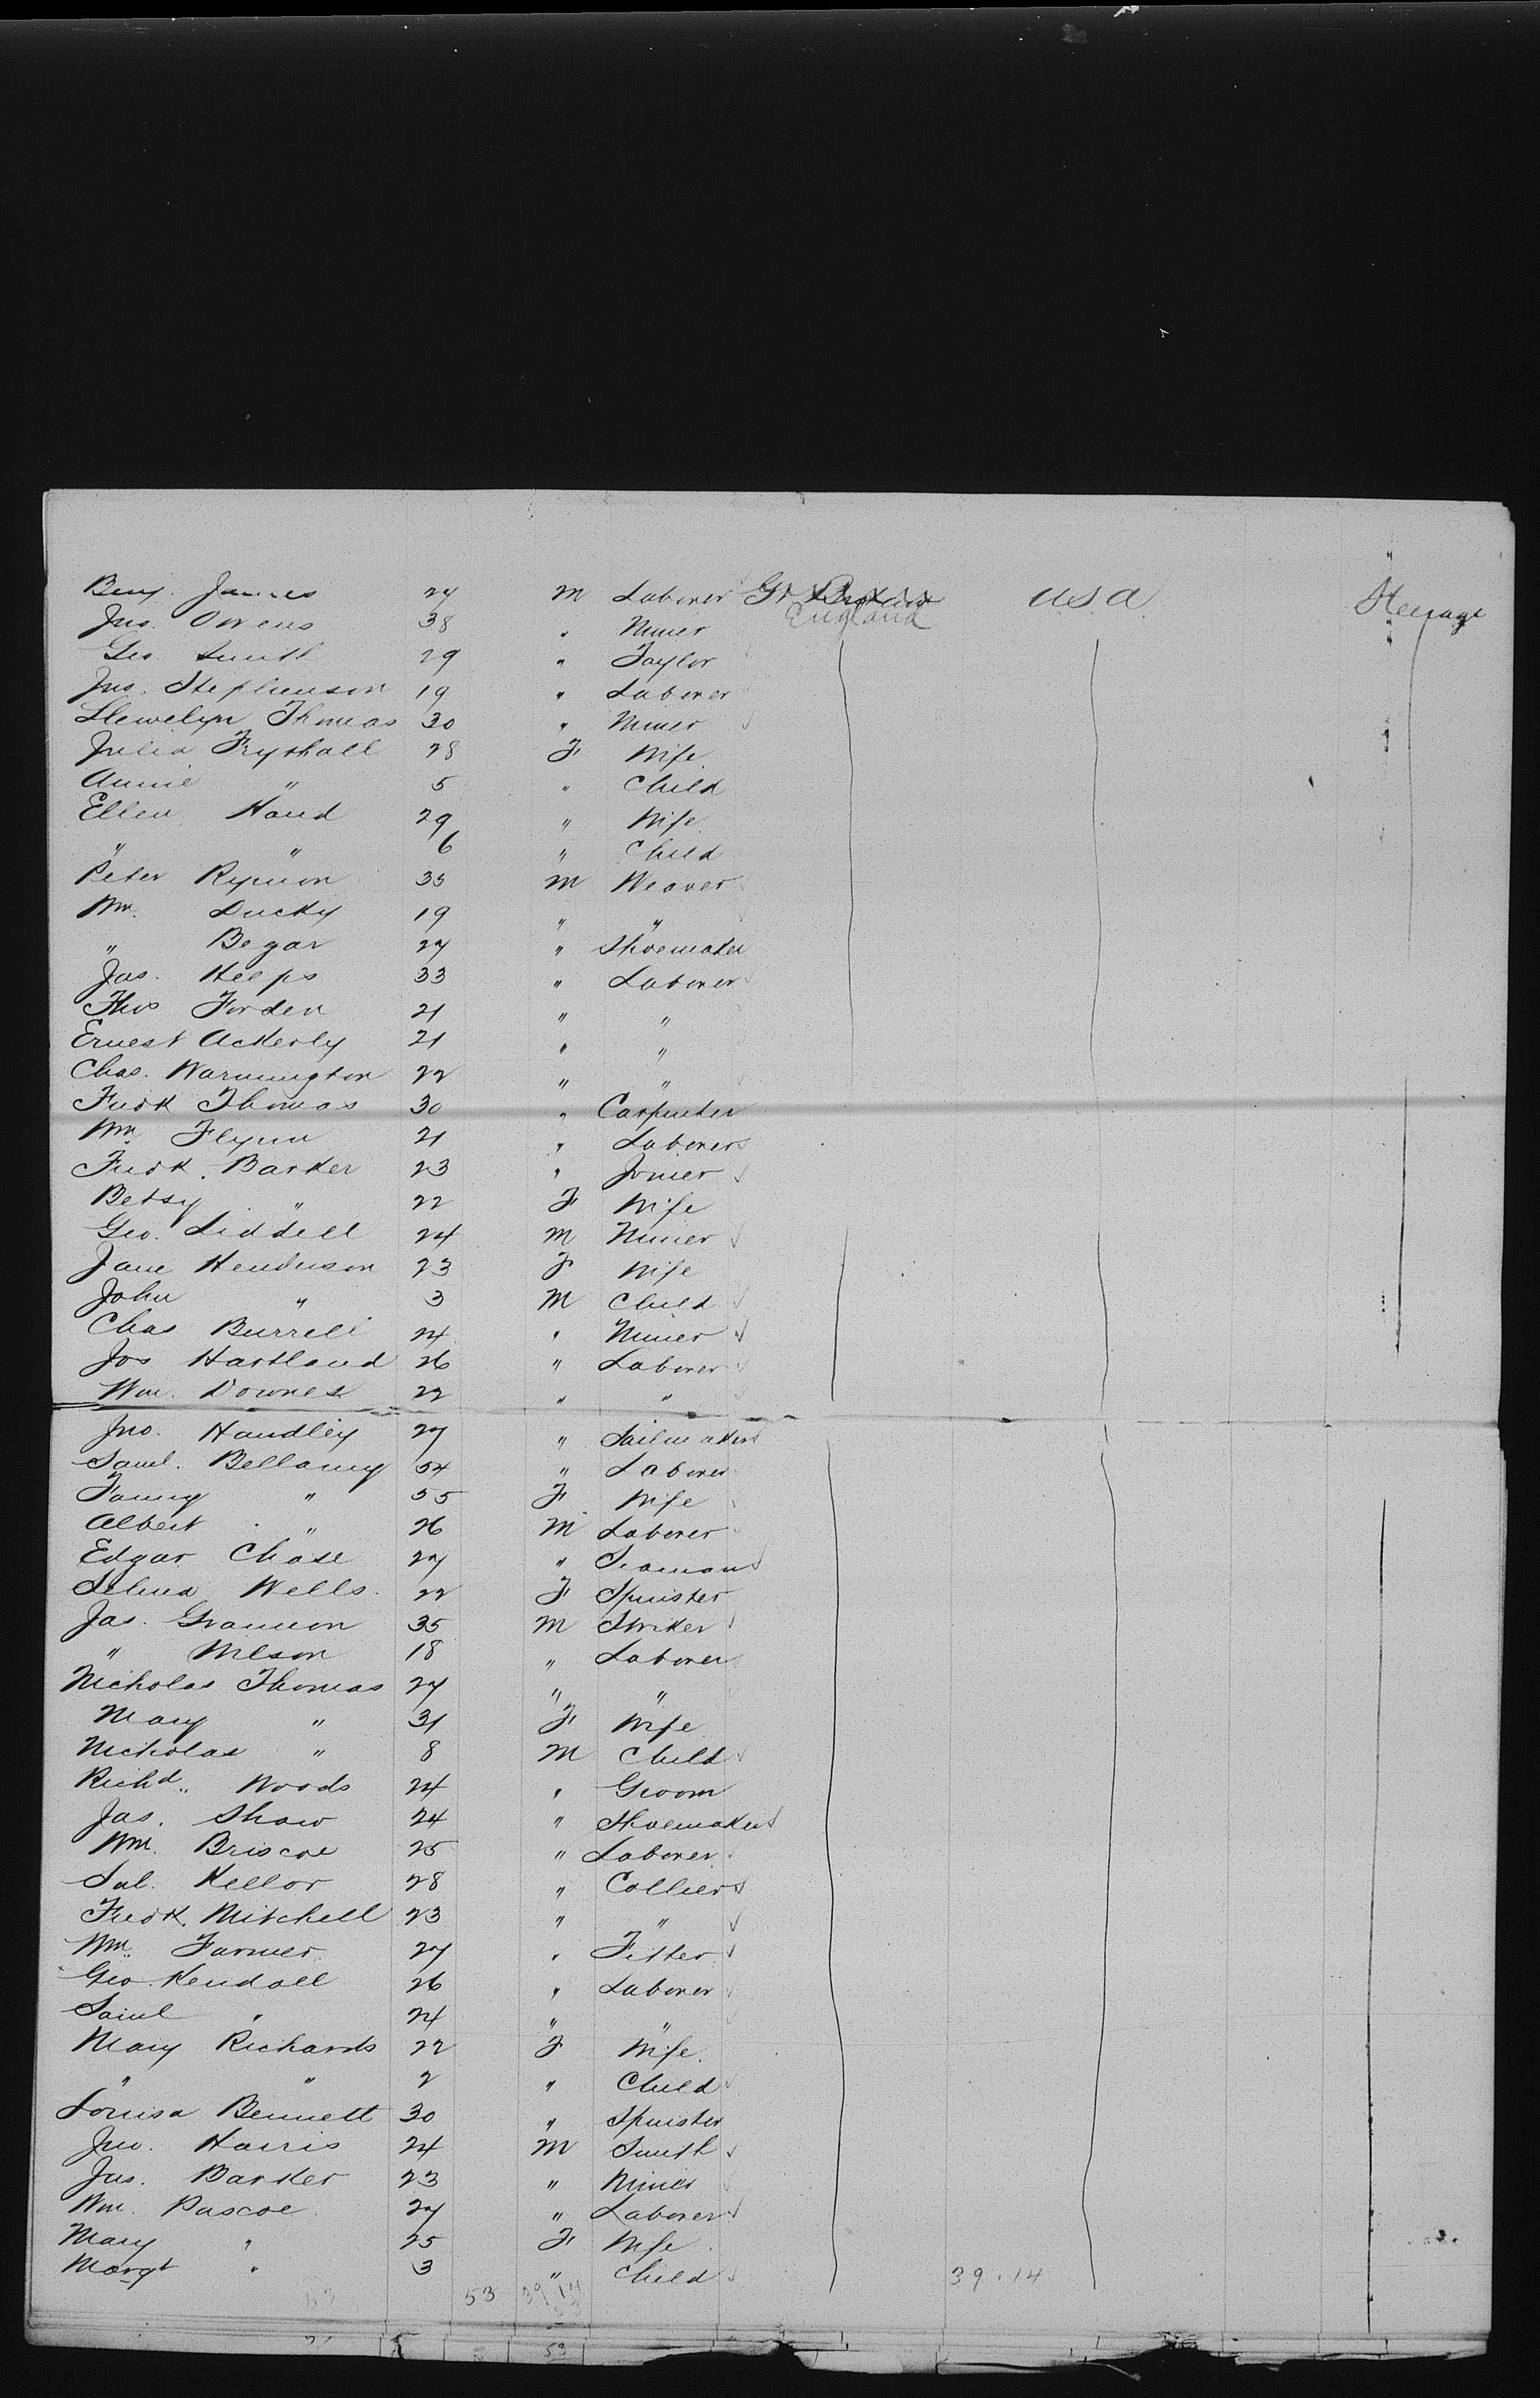 Benj. James 27 M Laborer Gt Britain USA Steerage
Jno. Owens 38 " Miner England
Geo. Smith 29 " Taylor
Jno. Stephenson 19 " Laborer
Llewelyn Thomas 30 " Miner
Julia Fryshall 28 F Wife
Annie " 5 " Child
Ellen Hand 29 " Wife
" " 6 " Child
Peter 35 M Weaver
Wm. Ducky 19 " "
" Begar 27 " Shoemaker
Jas. Heeps 33 " Laborer
Thos Forden 21 " "
Ernest Ackerly 21 " "
Chas. Warmington 22 " "
Fredk Thomas 30 " Carpenter
Wm Flynn 21 " Laborer
Fredk. Barker 23 " Joiner
Betsy " 22 F Wife
Geo. Liddell 24 M Miner
Jane Henderson 23 F Wife
John " 3 M Child
Chas Burrell 24 " Miner
Jos Hartland 26 " Laborer
Wm. Downes 22 " "
Jno. Handley 27 " Sailmaker
Saml. Bellamy 54 " Laborer
Fanny " 55 F Wife
Albert " 26 M Laborer
Edgar Chase 27 " Seaman
Selina Wells 22 F Spinster
Jas. Grannon 35 M Striker
" Wilson 18 " Laborer
Nicholas Thomas 27 " "
Mary " 31 F Wife
Nicholas " 8 M Child
Richd. Woods 24 " Groom
Jas. Shaw 24 " Shoemaker
Wm. Briscoe 25 " Laborer
Sal. Kellor 28 " Collier
Fredk. Mitchell 23 " "
Wm. Farmer 27 " Fitter
Geo. Kendall 26 " Laborer
Saml " 24 " "
Mary Richards 22 F Wife
" " 2 " Child
Louisa Bennett 30 " Spinster
Jno. Harris 24 M Smith
Jas. Barker 23 " Miner
Wm. Pascoe 27 " Laborer
Mary " 25 F Wife
Margt " 3 " Child
53 53 39 14 39.14
53
59